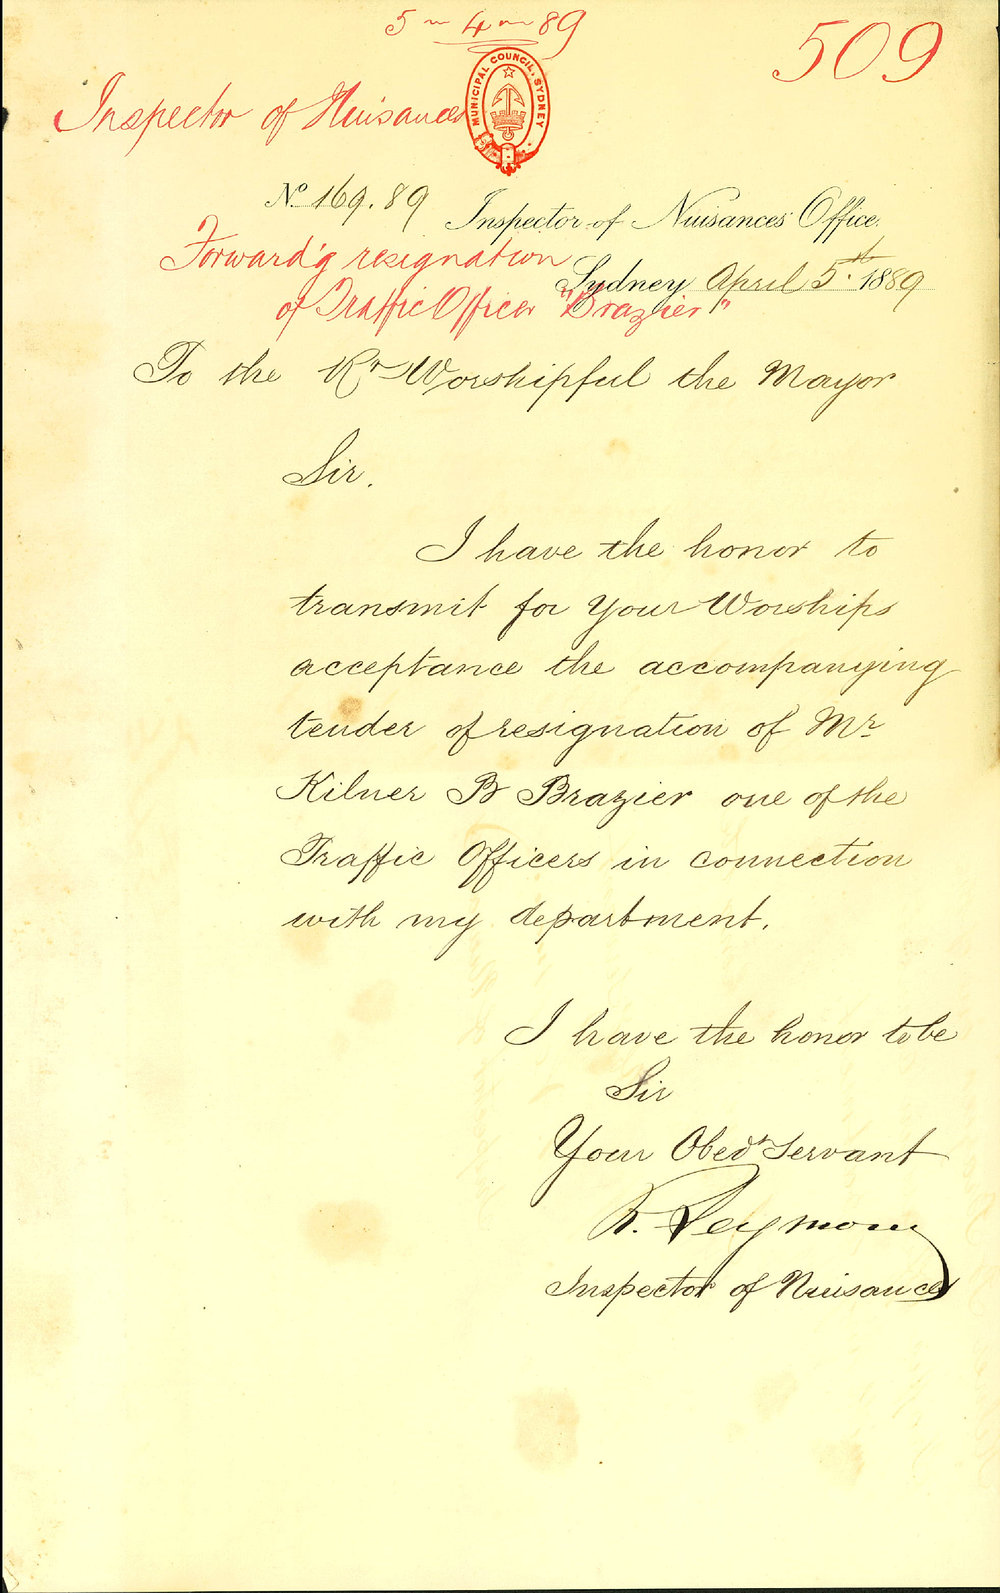 5 - 4 - 89
509
MUNICIPAL COUNCIL, SYDNEY
Inspector of Nuisances
No. 169.89 Inspector of Nuisances' Office.
Forward'g resignation
Sydney April 5th 1889
of Traffic Officer "Brazier"
To the Rt Worshipful the Mayor
Sir.
I have the honor to
transmit for Your Worships
acceptance the accompanying
tender of resignation of Mr
Kilner B Brazier one of the
Traffic Officers in connection
with my department.
I have the honor to be
Sir
Your Obedt Servant
R. Seymour
Inspector of Nuisances